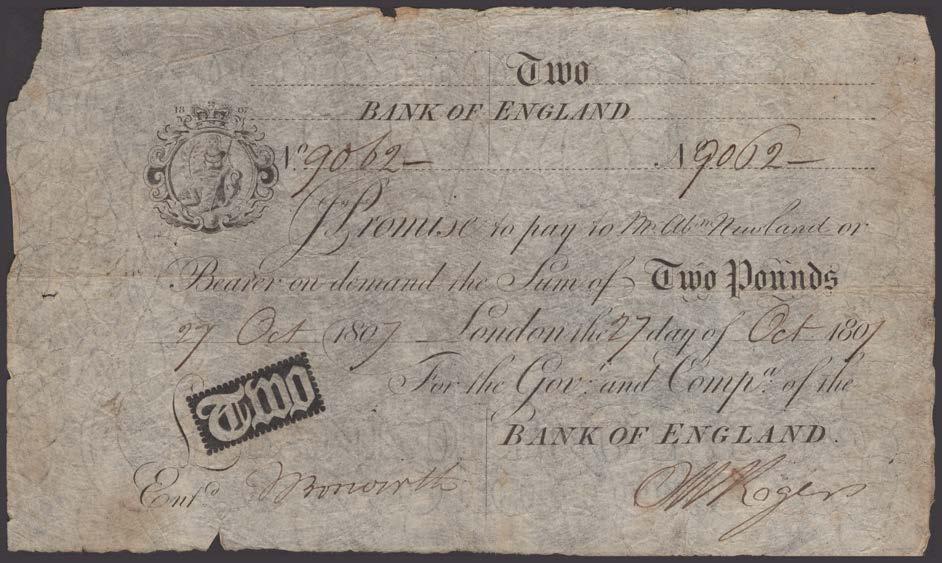 Two
BANK OF ENGLAND
18 07
No 9062— No 9062—
I Promise to pay to Mr. Abm. Newland or
Bearer on demand the Sum of Two Pounds
27 Oct 1807 London the 27 day of Oct 1807
For the Govr. and Compa. of the
Two
BANK OF ENGLAND.
Entd. Rogers